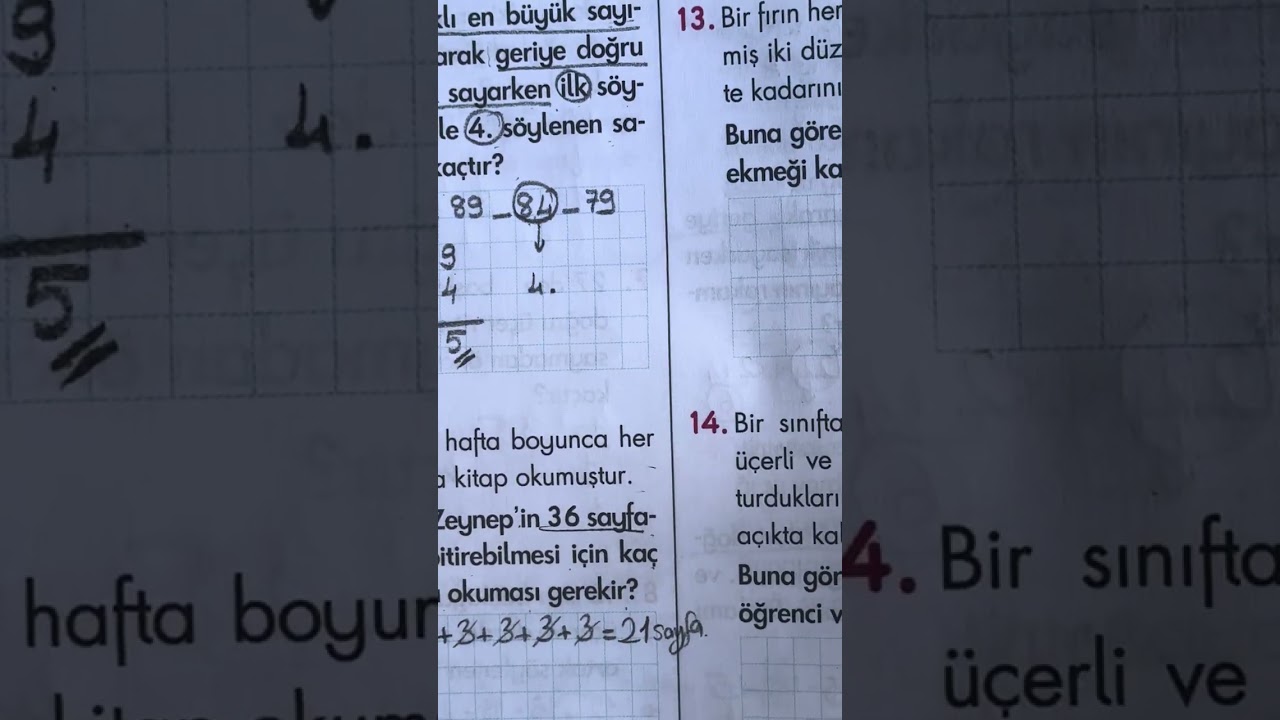 klı en büyük sayı-
arak geriye doğru
sayarken ilk söy-
le 4. söylenen sa-
kaçtır?
89 - 84 - 79
9
4 4.
5
hafta boyunca her
a kitap okumuştur.
Zeynep'in 36 sayfa-
bitirebilmesi için kaç
okuması gerekir?
+ 3 + 3 + 3 + 3 = 21 sayfa.
13. Bir fırın her
miş iki düz
te kadarını
Buna göre
ekmeği ka
14. Bir sınıfta
üçerli ve
turdukları
açıkta kal
Buna gör
öğrenci v
9
4 4.
5
hafta boyun
4. Bir sınıfta
üçerli ve